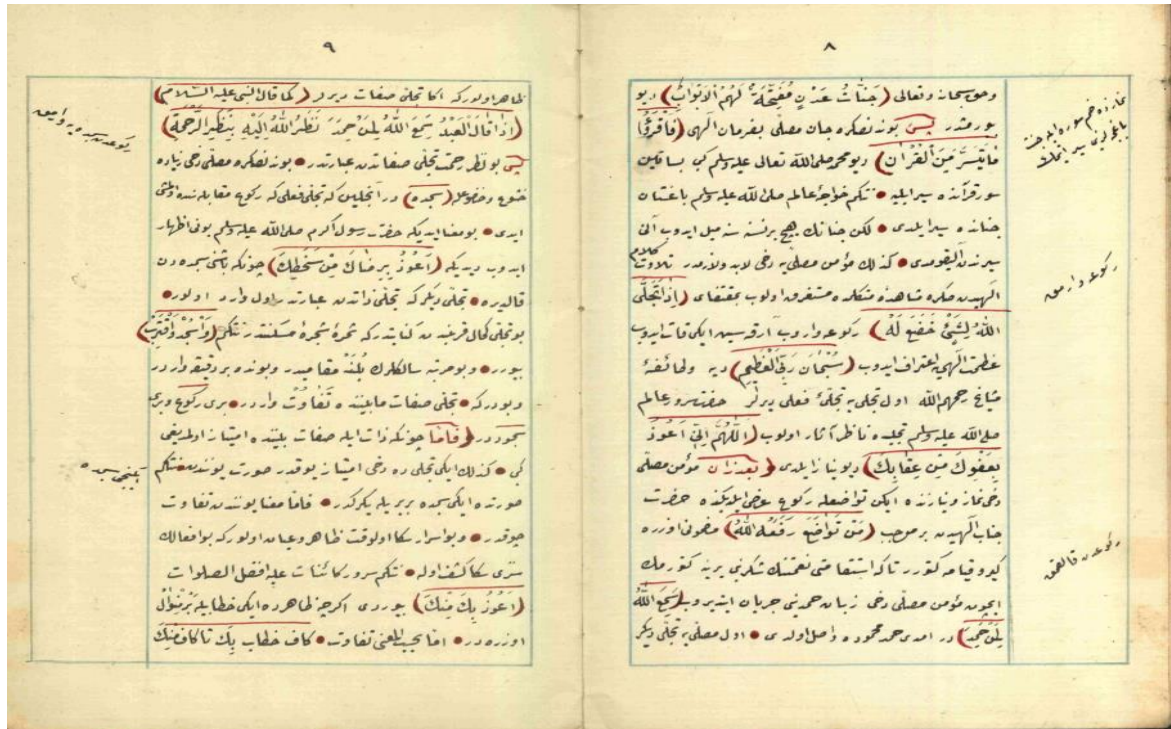 ٨
وحق سبحانه وتعالى (جَنَّاتُ عَدْنٍ مُفَتَّحَةً لَهُمُ الْاَبْوَابُ) ديو
بيورمشدر پس بوندنصكره جان مصلى بفرمان الهى (فَاقْرَؤُا
مَاتَيَسَّرَ مِنَ الْقُرْاٰنِ) ديو محمد صلى الله تعالى عليه وسلم كبى بساتين
سور قرآنده سير ايليه • نتكم خواجۀ عالم صلى الله عليه وسلم باغستان
جنانده سير ايلدى • لكن جنانك هيچ برنسنه سنه ميل ايدوب آنى
سيرندن آليقومدى • كذلك مؤمن مصلى يه دخى لابد ولازمدر تلاوت كلام
الهيدن صكره مشاهده متكلمده مستغرق اولوب بمقتضاى (اِذَا تَجَلَّى
اللّٰهُ لِشَيْءٍ خَضَعَ لَهُ) ركوعه واروب آرقه سين ايكى قات ايدوب
عظمت الهى يه اعتراف ايدوب (سُبْحَانَ رَبِّيَ الْعَظِيمِ) ديه
مشايخ رحمهم الله اول تجلى يه تجلئ فعلى ديرلر حضرت سرور عالم
صلى الله عليه وسلم تجليده ناظر آثار اولوب (اَللّٰهُمَّ اِنِّى اَعُوذُ
بِعَفْوِكَ مِنْ عِقَابِكَ) ديو نياز ايلدى (بعدزان مؤمن مصلى
دخى نماز ونيازنده ايكن تواضعله ركوع عرض ايلديكنده حضرت
جناب الهيدن برموجب (مَنْ تَوَاضَعَ رَفَعَهُ اللّٰهُ) مضمونى اوزره
كيرو قيامه كتورر تاكه استقامتى نعمتنك شكرنى يرينه كتورمك
ايچون مؤمن مصلى دخى زبان حمدنى جريان ايتديروب (سَمِعَ اللّٰهُ
لِمَنْ حَمِدَهُ) در امدى حمد محموده واصل اولدى • اول مصلى يه تجلئ ديكر
نمازده ضم سوره ايله جنت
باغچه لرين سير ايتمك
ركوعه وارمق
ركوعدن قالقمق
٩
ظاهر اولوركه اكا تجلئ صفات ديرلر (كما قال النبى عليه السّلام)
(اِذَا قَالَ الْعَبْدُ سَمِعَ اللّٰهُ لِمَنْ حَمِدَهُ نَظَرَ اللّٰهُ اِلَيْهِ بِنَظَرِ الرَّحْمَةِ)
پس بو نظر رحمت تجلئ صفاتدن عبارتدر • بوندنصكره مصلى دخى زياده
خشوع وخضوعله (سجده) در آنجلين كه تجلئ فعلى كه ركوع مقابله سنده اولمش
ايدى • بو معنا ايديكه حضرت رسول اكرم صلى الله عليه وسلم بونى اظهار
ايدوب ديديكه (اَعُوذُ بِرِضَاكَ مِنْ سَخَطِكَ) چونكه باشنى سجده دن
قالديره • تجلئ ديكر كه تجلئ ذاتدن عبارتدر اول وارد اولور •
بو تجلئ كمال قربتدن كنايتدركه ثمرۀ شجرۀ مسكنتدر نتكم (وَاسْجُدْ وَاقْتَرِبْ)
بيورر • وبو مرتبه سالكلرك بُلَنْد مقاميدر وبونده بر دقيقه واردر
وبودركه • تجلئ صفات مابيننده تَفَاوُتْ واردر • برى ركوع وبرى
سجوددر (فامّا چونكه ذات ايله صفات بيننده امتياز اولمديغى
كبى • كذلك ايكى تجلى ده دخى امتياز يوقدر صورت يوزندن • نتكم
صورتده ايكى سجده بربريله بكردر • فامّا معنا يوزندن تفاوت
چوقدر • وبو اسرار سكا اولوقت ظاهر وعيان اولوركه بو افعالك
سرّى سكا كشف اوله • نتكم سرور كائنات عليه افضل الصلوات
(اَعُوذُ بِكَ مِنْكَ) بيوردى اكرچه ظاهرده ايكى خطابله بَرْمِنْوَالْ
اوزره در • امّا بحسب المعنى تفاوت • كاف خطاب بِكَ تا كاف مِنْكَ
ركوعدن سجده يه وارمق
ايكنجى سجده